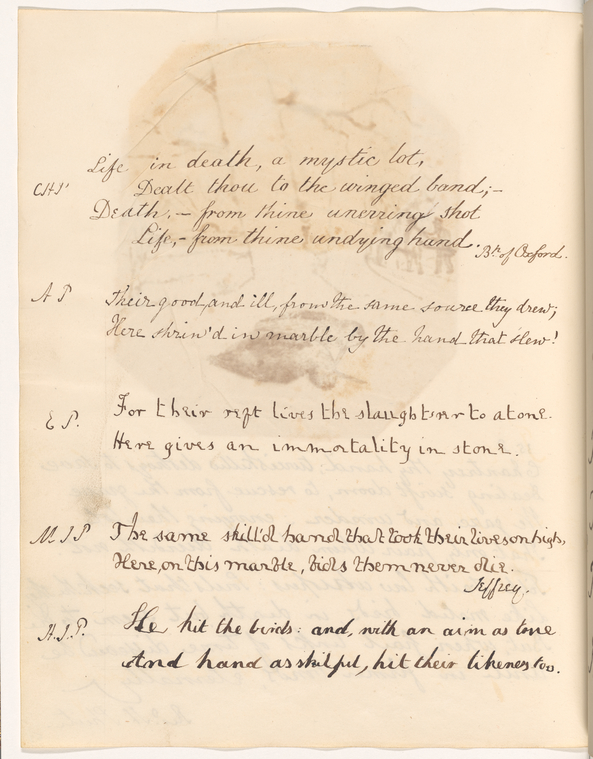 Life in death, a mystic lot,
CHP Dealt thou to the winged band;–
Death,– from thine unerring shot
Life,– from thine undying hand.
Bp. of Oxford.
A P Their good, and ill, from the same source they drew;
Here shrin'd in marble by the hand that slew!
E P. For their reft lives the slaughterer to atone.
Here gives an immortality in stone.
M I P The same skill'd hand that took their lives on high,
Here, on this marble, bids them never die.
Jeffrey.
H.I.P. He hit the birds: and, with an aim as true
And hand as skilful, hit their likeness too.